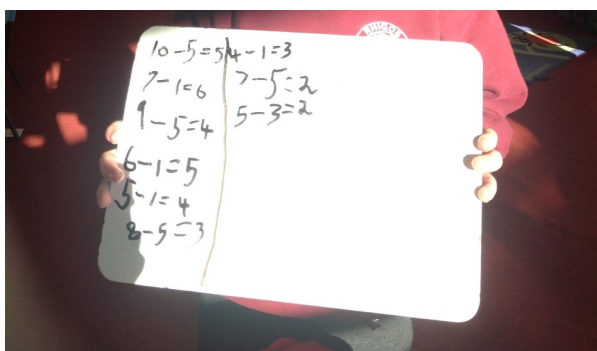 10-5=5
7-1=6
9-5=4
6-1=5
5-1=4
8-5=3
4-1=3
7-5=2
5-3=2